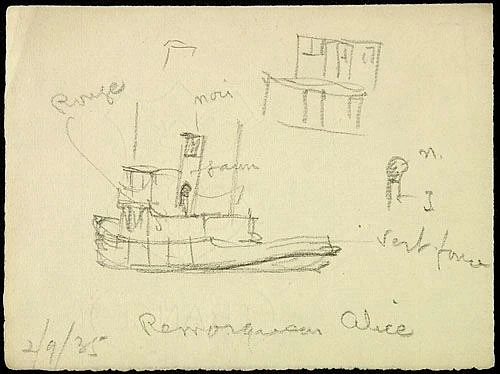 Rouge
noir
jaune
n.
J
vert foncé
Remorqueur Alice
2/9/35